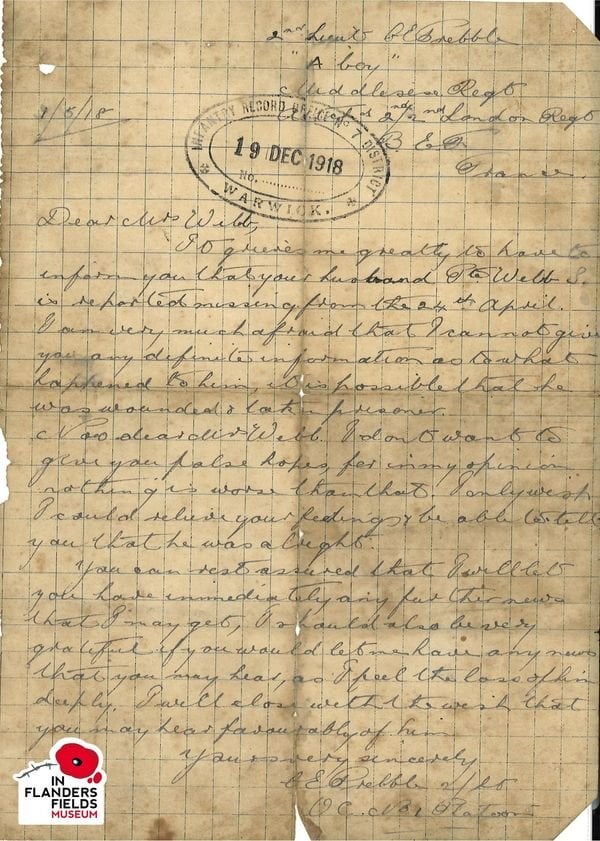 2nd Lieut C E Prebble
"A Coy"
Middlesex Regt
2/2nd London Regt
B E F
France.
1/5/18
INFANTRY RECORD OFFICE No 7 DISTRICT
19 DEC 1918
No.
WARWICK.
Dear Mrs Webb,
It grieves me greatly to have to
inform you that your husband Pte Webb S.
is reported missing from the 24th April.
I am very much afraid that I cannot give
you any definite information as to what
happened to him, it is possible that he
was wounded & taken prisoner.
Now dear Mrs Webb. I dont want to
give you false hopes, for in my opinion
nothing is worse than that. I only wish
I could relieve your feelings & be able to tell
you that he was alright.
You can rest assured that I will let
you have immediately any further news
that I may get, I should also be very
grateful if you would let me have any news
that you may hear, as I feel the loss of him
deeply. I will close with the wish that
you may hear favourably of him
Yours very sincerely
C E Prebble 2/Lt
O.C. No 1 Platoon
IN
FLANDERS
FIELDS
MUSEUM